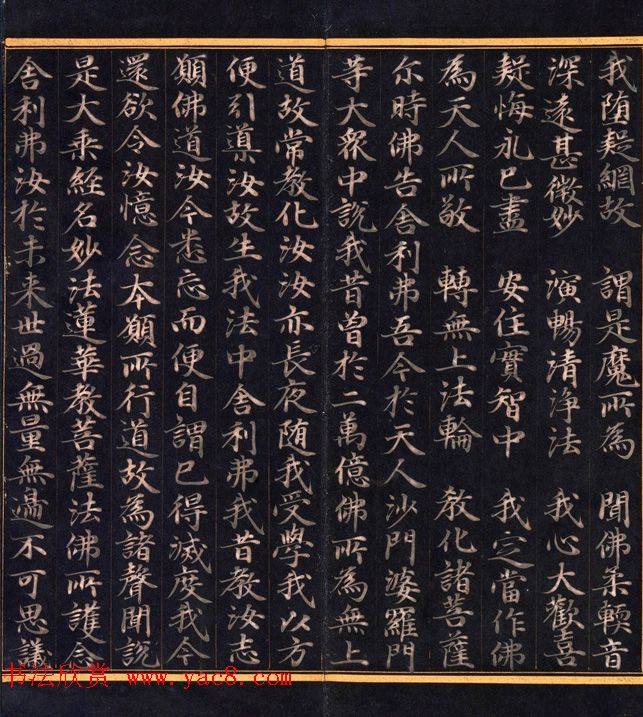 我堕疑網故　謂是魔所為　聞佛柔軟音
深遠甚微妙　演暢清浄法　我心大歡喜
疑悔永已盡　安住實智中　我定當作佛
為天人所敬　轉無上法輪　教化諸菩薩
尓時佛告舍利弗吾今於天人沙門婆羅門
等大衆中説我昔曽於二萬億佛所為無上
道故常教化汝汝亦長夜随我受學我以方
便引導汝故生我法中舍利弗我昔教汝志
願佛道汝今悉忘而便自謂已得滅度我今
還欲令汝憶念本願所行道故為諸聲聞説
是大乗經名妙法蓮華教菩薩法佛所護念
舎利弗汝於未来世過無量無邊不可思議
书法欣赏 www.yac8.com